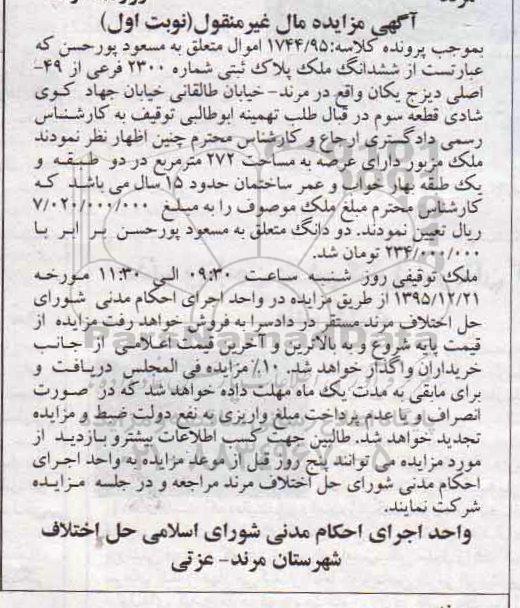 آگهی مزایده مال غیرمنقول(نوبت اول)
بموجب پرونده کلاسه:۱۷۴۴/۹۵ اموال متعلق به مسعود پورحسن که
عبارتست از ششدانگ ملک پلاک ثبتی شماره ۲۳۰۰ فرعی از ۴۹-
اصلی دیزج یکان واقع در مرند- خیابان طالقانی خیابان جهاد کوی
شادی قطعه سوم در قبال طلب تهمینه ابوطالبی توقیف به کارشناس
رسمی دادگستری ارجاع و کارشناس محترم چنین اظهار نظر نمودند
ملک مزبور دارای عرصه به مساحت ۲۷۲ مترمربع در دو طبقه و
یک طبقه بهار خواب و عمر ساختمان حدود ۱۵ سال می باشد که
کارشناس محترم مبلغ ملک موصوف را به مبلغ ۷/۰۲۰/۰۰۰/۰۰۰
ریال تعیین نمودند. دو دانگ متعلق به مسعود پورحسن برابر با
۲۳۴/۰۰۰/۰۰۰ تومان شد.
ملک توقیفی روز شنبه ساعت ۰۹:۳۰ الی ۱۱:۳۰ مورخه
۱۳۹۵/۱۲/۲۱ از طریق مزایده در واحد اجرای احکام مدنی شورای
حل اختلاف مرند مستقر در دادسرا به فروش خواهد رفت مزایده از
قیمت پایه شروع و به بالاترین و آخرین قیمت اعلامی از جانب
خریداران واگذار خواهد شد. ۱۰٪ مزایده فی المجلس دریافت و
برای مابقی به مدت یک ماه مهلت داده خواهد شد که در صورت
انصراف و یا عدم پرداخت مبلغ واریزی به نفع دولت ضبط و مزایده
تجدید خواهد شد. طالبین جهت کسب اطلاعات بیشتر و بازدید از
مورد مزایده می توانند پنج روز قبل از موعد مزایده به واحد اجرای
احکام مدنی شورای حل اختلاف مرند مراجعه و در جلسه مزایده
شرکت نمایند.
واحد اجرای احکام مدنی شورای اسلامی حل اختلاف
شهرستان مرند- عزتی